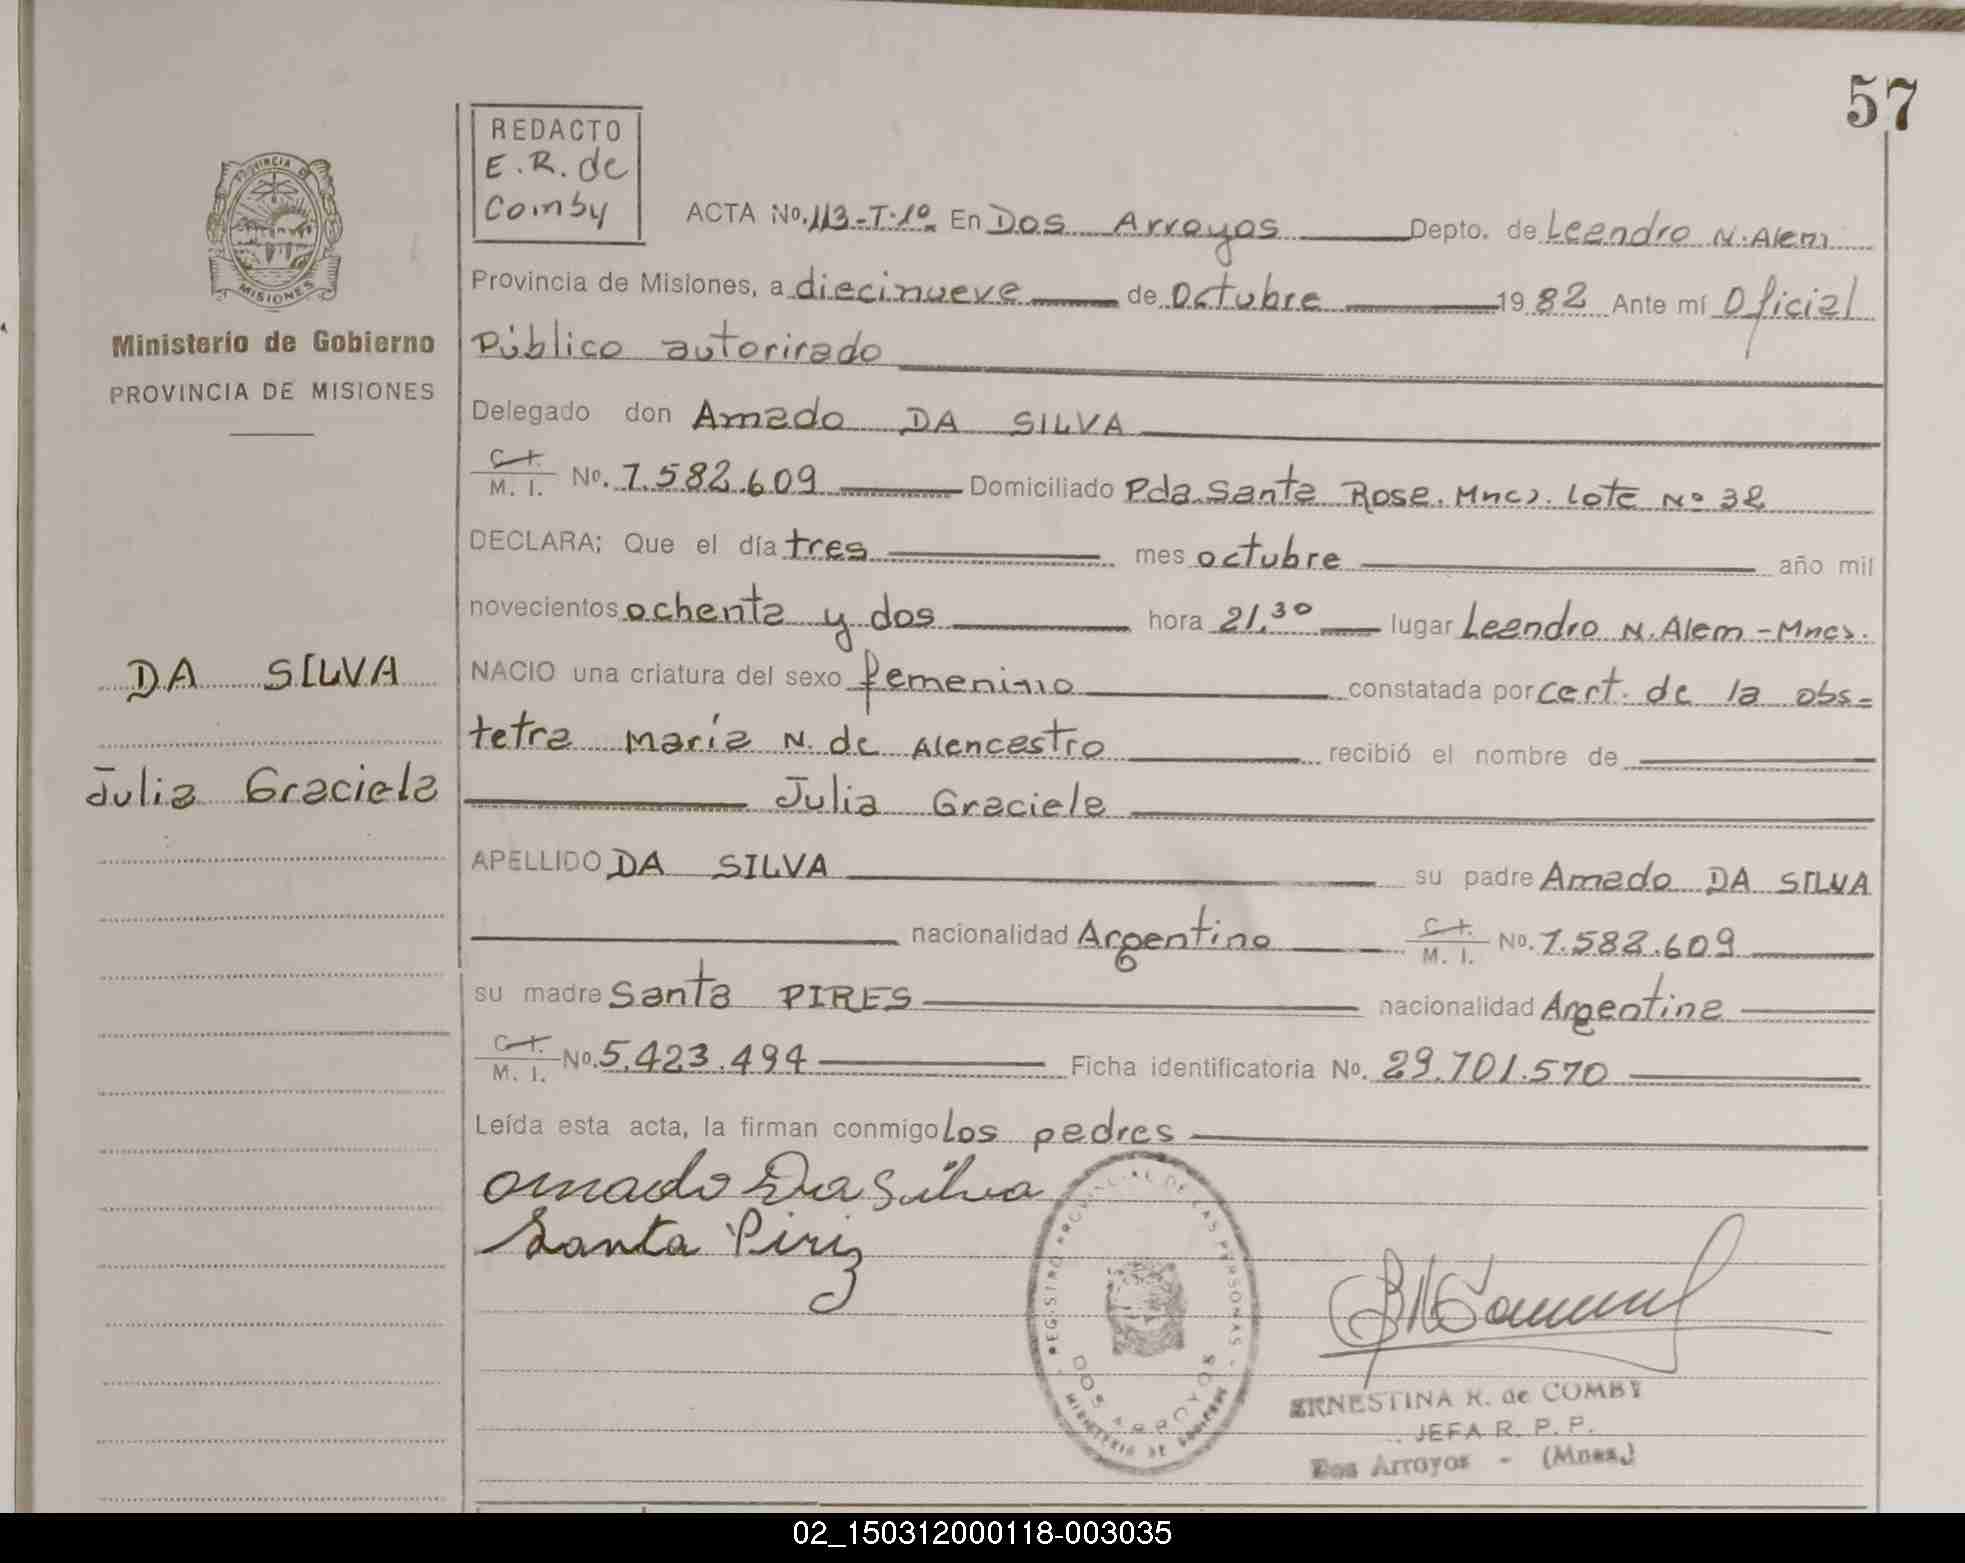 57
REDACTO
E. R. de
Comby
ACTA No. 113-T.1º En Dos Arroyos Depto. de Leandro N. Alem
Provincia de Misiones, a diecinueve de Octubre 1982 Ante mí Oficial
Público autorizado
PROVINCIA DE
MISIONES
Ministerio de Gobierno
PROVINCIA DE MISIONES
Delegado don Amado DA SILVA
C.I.
M. I. No. 7.582.609 Domiciliado Pda. Santa Rosa. Mnes. Lote Nº 32
DECLARA; Que el día tres mes octubre año mil
novecientos ochenta y dos hora 21,30 lugar Leandro N. Alem - Mnes.
DA SILVA
NACIO una criatura del sexo femenino constatada por cert. de la obs-
tetra María N. de Alencastro recibió el nombre de
Julia Graciela
Julia Graciela
APELLIDO DA SILVA su padre Amado DA SILVA
nacionalidad Argentino C.I.
M. I. No. 7.582.609
su madre Santa PIRES nacionalidad Argentina
C.I.
M. I. No. 5.423.494 Ficha identificatoria No. 29.701.570
Leída esta acta, la firman conmigo los padres
Amado Da Silva
Santa Piriz
REGISTRO PROVINCIAL DE LAS PERSONAS
DOS ARROYOS
MINISTERIO DE GOBIERNO
ERNESTINA R. de COMBY
JEFA R. P. P.
Dos Arroyos - (Mnes.)
02_150312000118-003035